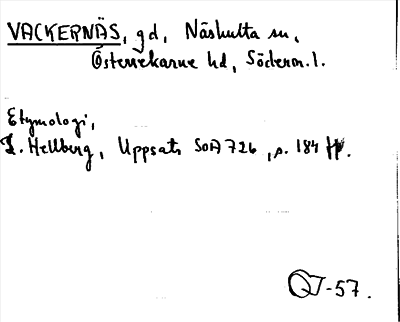 VACKERNÄS, gd, Näshulta sn,
Österrekarne hd, Söderm. l.
Etymologi,
L. Hellberg, Uppsats SOA 726, s. 184 ff.
-57.